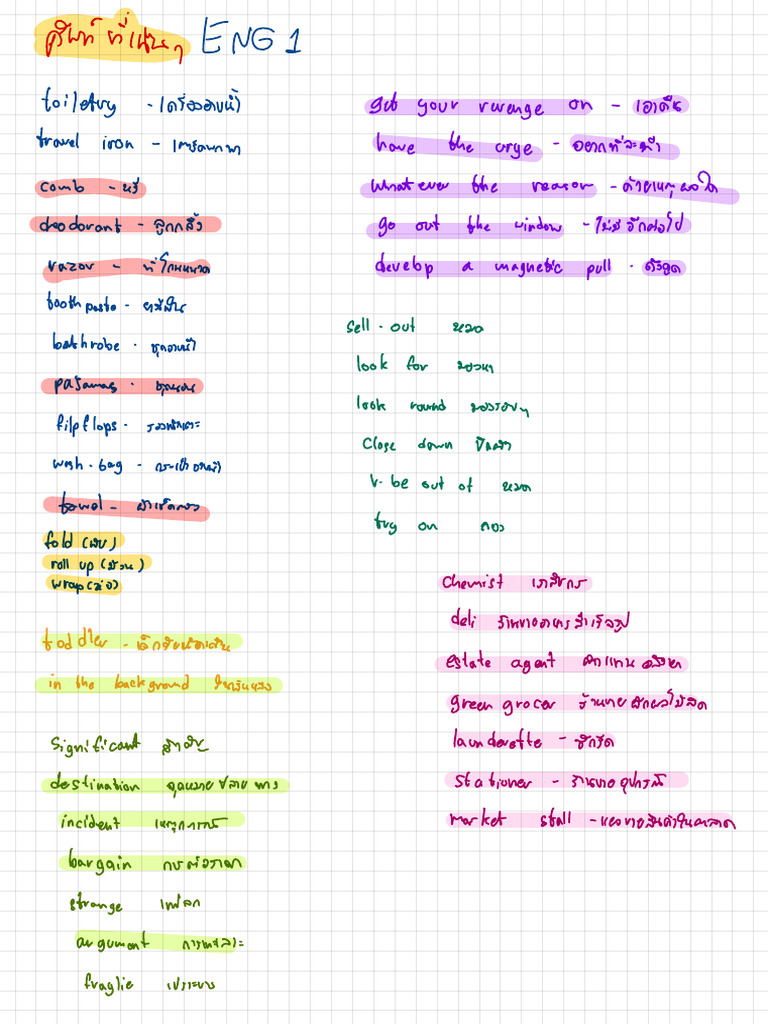 ศัพท์ที่เน้นๆ ENG 1
toiletry - เครื่องอาบน้ำ
travel iron - เตารีดพกพา
comb - หวี
deodorant - ลูกกลิ้ง
razor - ที่โกนหนวด
toothpaste - ยาสีฟัน
bathrobe - ชุดอาบน้ำ
pajamas - ชุดนอน
filpflops - รองเท้าแตะ
wash-bag - กระเป๋าอาบน้ำ
towel - ผ้าเช็ดตัว
fold (พับ)
roll up (ม้วน)
wrap (ห่อ)
toddler - เด็กวัยหัดเดิน
in the background
significant สำคัญ
destination จุดหมายปลายทาง
incident เหตุการณ์
bargain การต่อราคา
strange แปลก
argument การทะเลาะ
fraglie เปราะบาง
get your revenge on - เอาคืน
have the urge - อยากที่จะทำ
whatever the reason - ด้วยเหตุผลใด
go out the window - ไม่มีอีกต่อไป
develop a magnetic pull - ดึงดูด
sell-out หมด
look for มองหา
look round มองรอบๆ
close down ปิดตัว
v. be out of หมด
try on ลอง
chemist เภสัชกร
deli ร้านขายอาหารสำเร็จรูป
estate agent ตัวแทนอสังหา
green grocer ร้านขายผักผลไม้สด
launderette - ซักรีด
stationer - ร้านขายอุปกรณ์
market stall - แผงขายสินค้าในตลาด